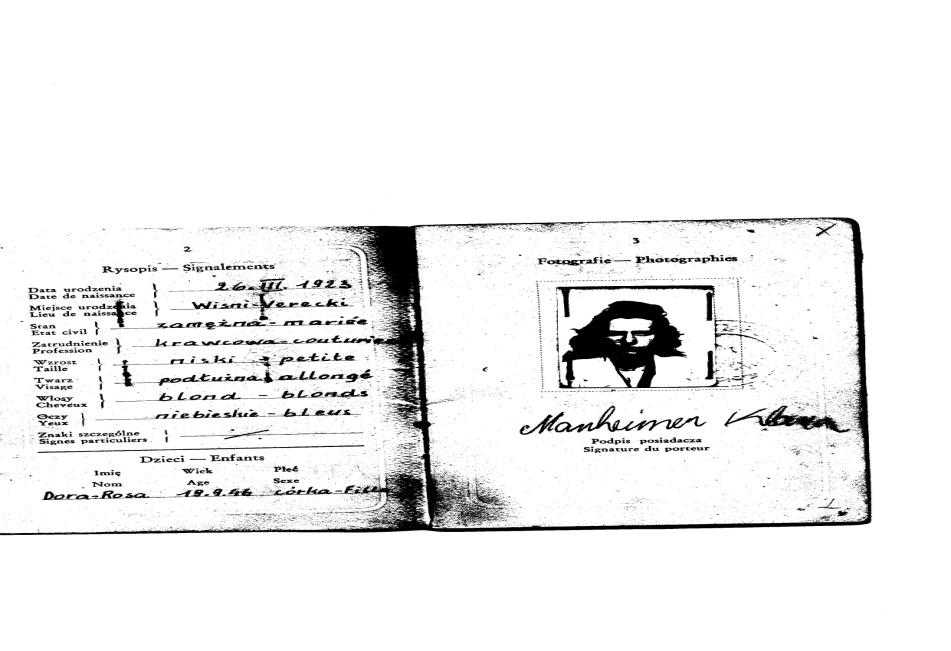 2
Rysopis — Signalements
Data urodzenia
Date de naissance } 26. III. 1923
Miejsce urodzenia
Lieu de naissance } Wisni-Verecki
Stan
Etat civil } zamężna - mariée
Zatrudnienie
Profession } krawcowa-couturière
Wzrost
Taille } niski - petite
Twarz
Visage } podłużna allongé
Włosy
Cheveux } blond - blonds
Oczy
Yeux } niebieskie - bleus
Znaki szczególne
Signes particuliers }
Dzieci — Enfants
Imię Wiek Płeć
Nom Age Sexe
Dora-Rosa 19.9.46 córka-
3
Fotografie — Photographies
Manheimer
Podpis posiadacza
Signature du porteur